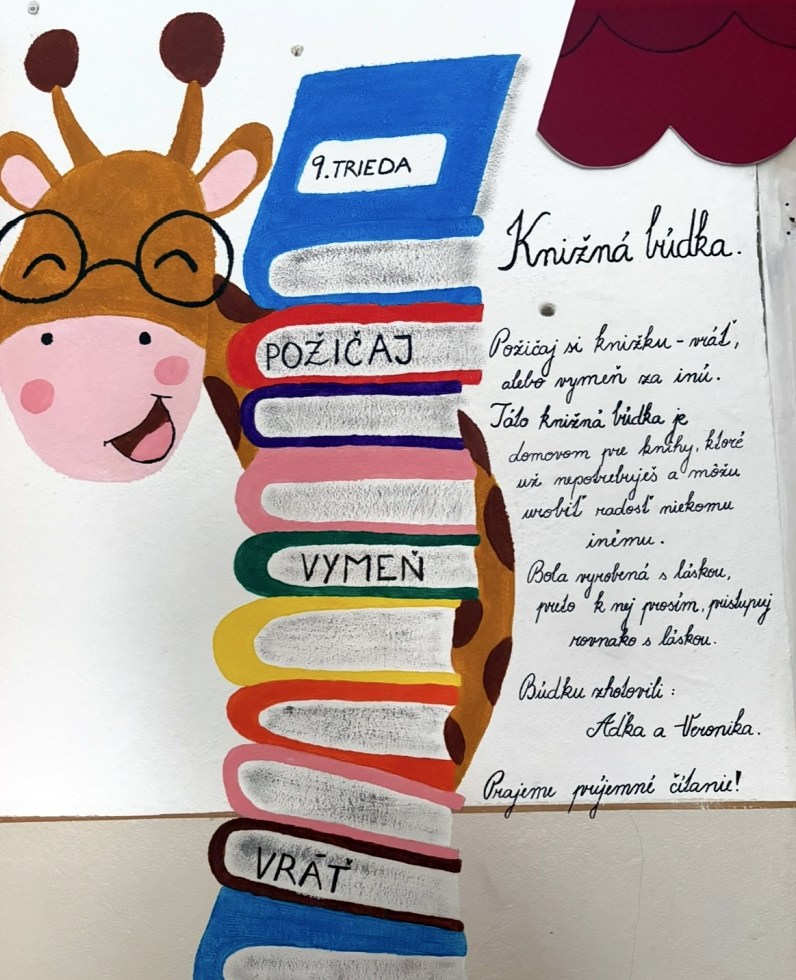 9. TRIEDA
POŽIČAJ
VYMEŇ
VRÁŤ
Knižná búdka.
Požičaj si knižku - vráť,
alebo vymeň za inú.
Táto knižná búdka je
domovom pre knihy, ktoré
už nepotrebuješ a môžu
urobiť radosť niekomu
inému.
Bola vyrobená s láskou,
preto k nej prosím, pristupuj
rovnako s láskou.
Búdku zhotovili :
Aďka a Veronika.
Prajeme príjemné čítanie!